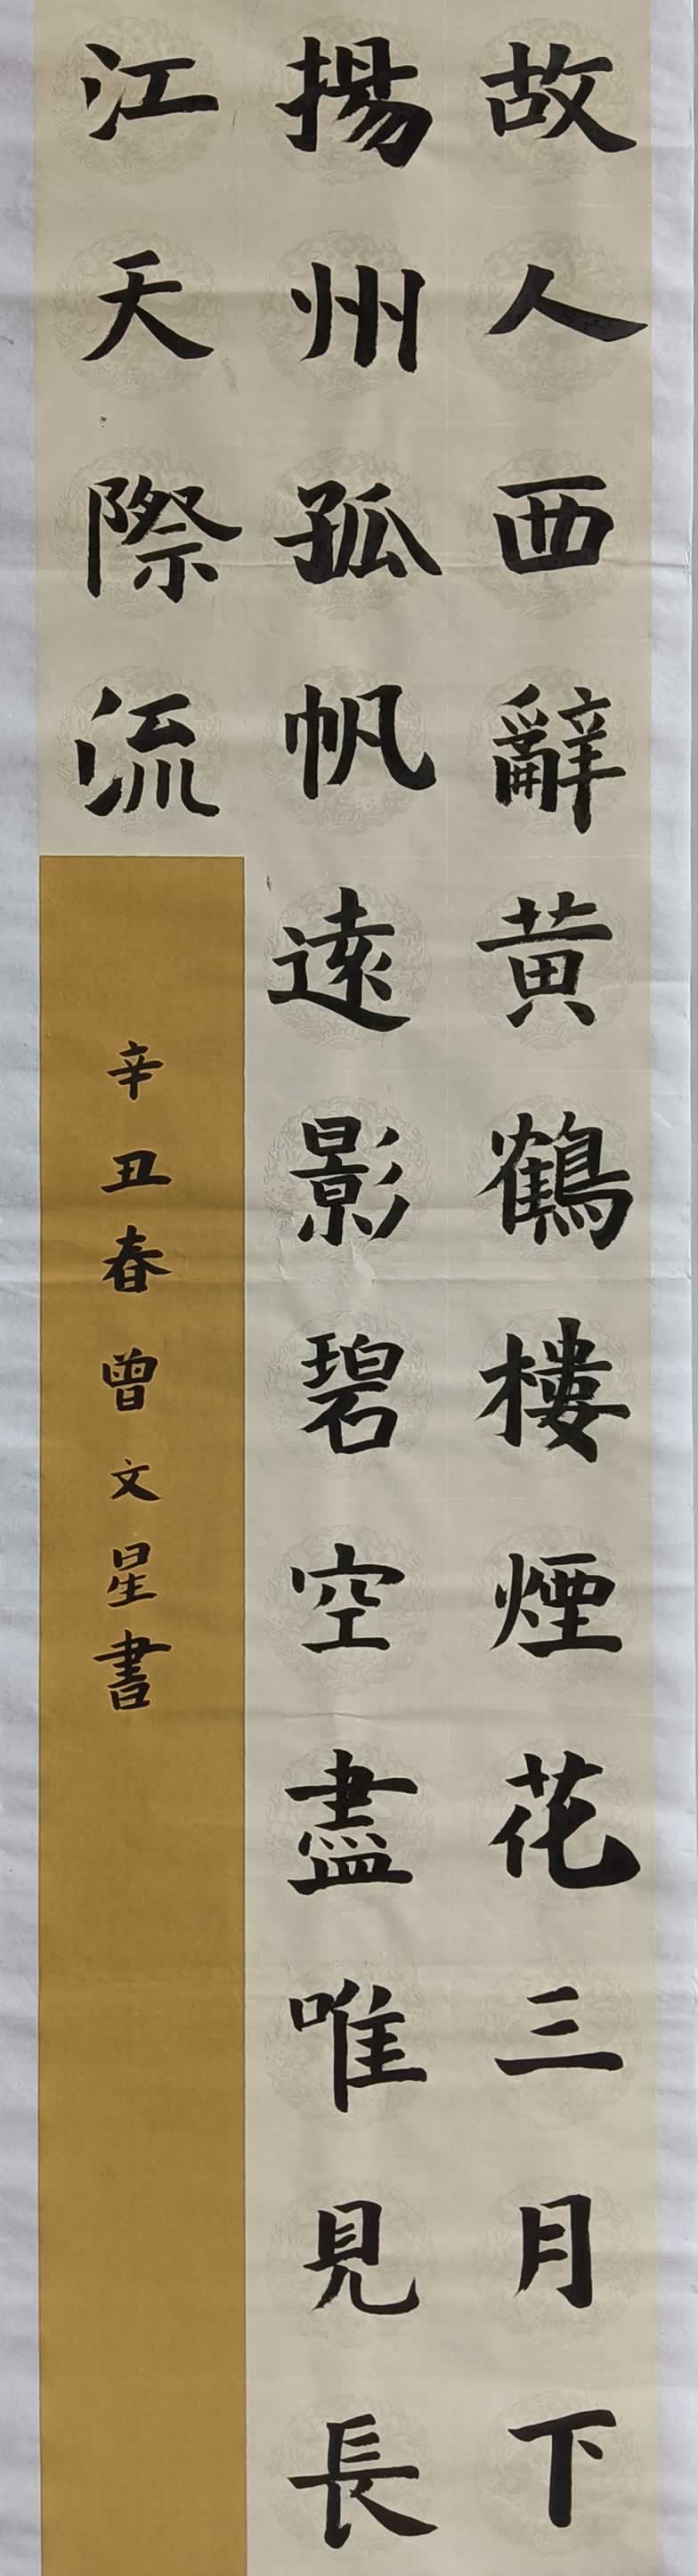 故人西辭黃鶴樓煙花三月下
揚州孤帆遠影碧空盡唯見長
江天際流
辛丑春曾文星書